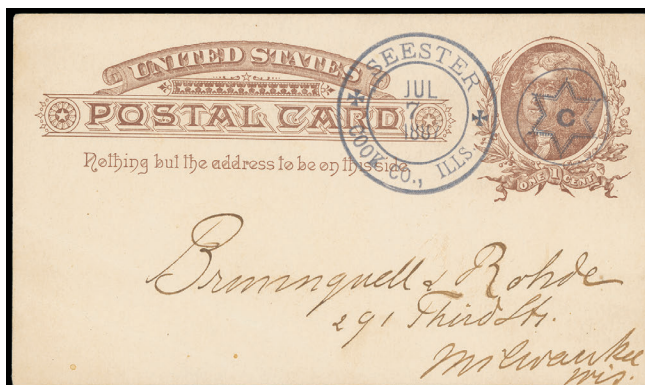 UNITED STATES
POSTAL CARD
Nothing but the address to be on this side.
SEESTER
JUL
7
1887
COOK CO., ILLS.
C
ONE 1 CENT
& Rohde
291 Third Str.
Milwaukee
Wis.